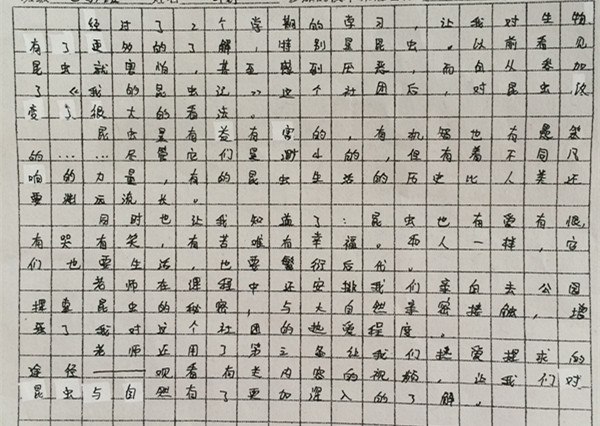 经过了2个学期的学习，让我对生物
有了更多的了解，特别是昆虫。以前看见
昆虫就害怕，甚至感到厌恶，而自从参加
了《我的昆虫记》这个社团后，对昆虫改
变了很大的看法。
昆虫是有益有害的，有机智也有愚笨
的……尽管它们是渺小的，但有着不同凡
响的力量，有的昆虫生活的历史比人类还
要渊远流长。
同时也让我知道了：昆虫也有爱有恨，
有哭有笑，有苦难有幸福。和人一样，它
们也要生活，也要繁衍后代。
老师在课程中还安排我们亲自去公园
探查昆虫的秘密，与大自然亲密接触，增
强了我对这个社团的热爱程度。
老师还用了第二条让我们挚爱探求的
途径——观看有关内容的视频，让我们对
昆虫与自然有了更加深入的了解。